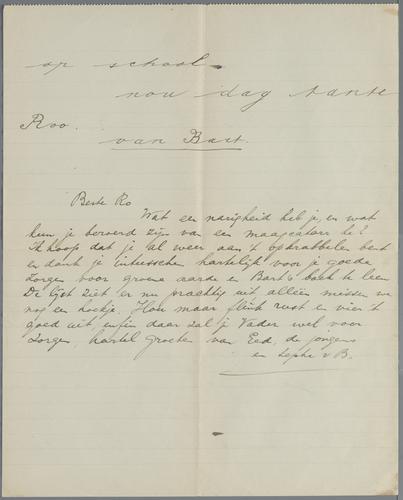 op school.
nou dag tante
Roo.
van Bart.
Beste Ro
Wat een narigheid heb je, en wat
kun je beroerd zijn van een maagcatarr hè?
Ik hoop dat je al weer aan 't opkrabbelen bent
en dank je intusschen hartelijk voor je goede
zorgen voor groene aarde en Bart's boek te leen
De lijst ziet er nu prachtig uit alleen missen we
nog een hoekje. Hou maar flink rust en vier 't
goed uit, enfin daar zal je Vader wel voor
zorgen, hartel groeten van Eed, de jongens
en Sephi v B.